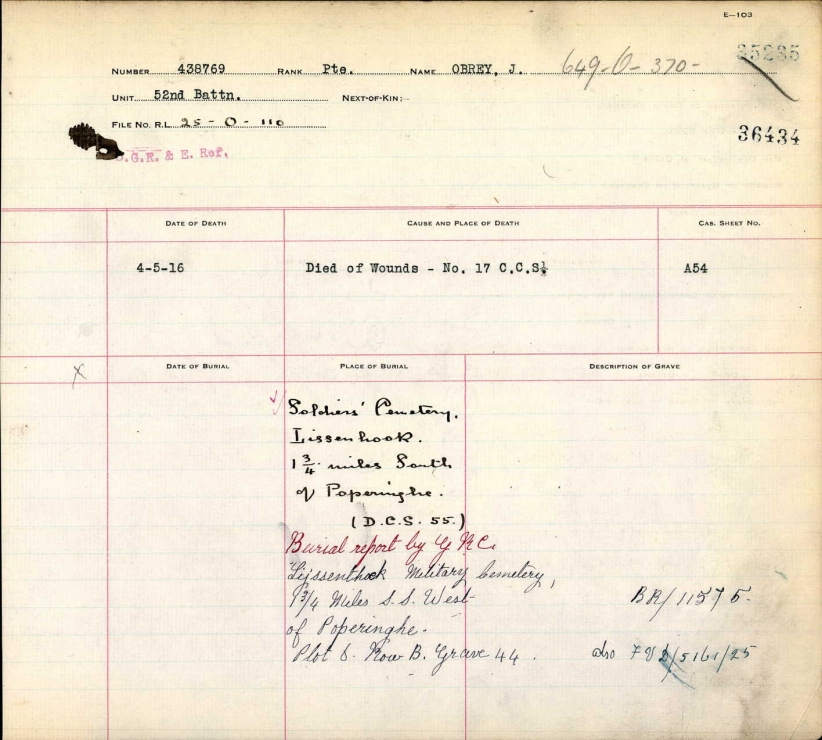 E—103
35235
NUMBER 438769 RANK Pte. NAME OBREY, J. 649-O-370-
UNIT 52nd Battn. NEXT-OF-KIN:-
FILE NO. R.L. 25 - O - 110
36434
.G.R. & E. Ref.
DATE OF DEATH CAUSE AND PLACE OF DEATH CAS. SHEET NO.
4-5-16 Died of Wounds - No. 17 C.C.S. A54
X DATE OF BURIAL PLACE OF BURIAL DESCRIPTION OF GRAVE
Soldiers' Cemetery,
Lissenhook.
1 3/4 miles South
of Poperinghe.
(D.C.S. 55.)
Burial report by G.R.C.
Lijssenthoek Military Cemetery,
1 3/4 Miles S.S. West BR/11575.
of Poperinghe.
Plot 6. Row B. Grave 44. also